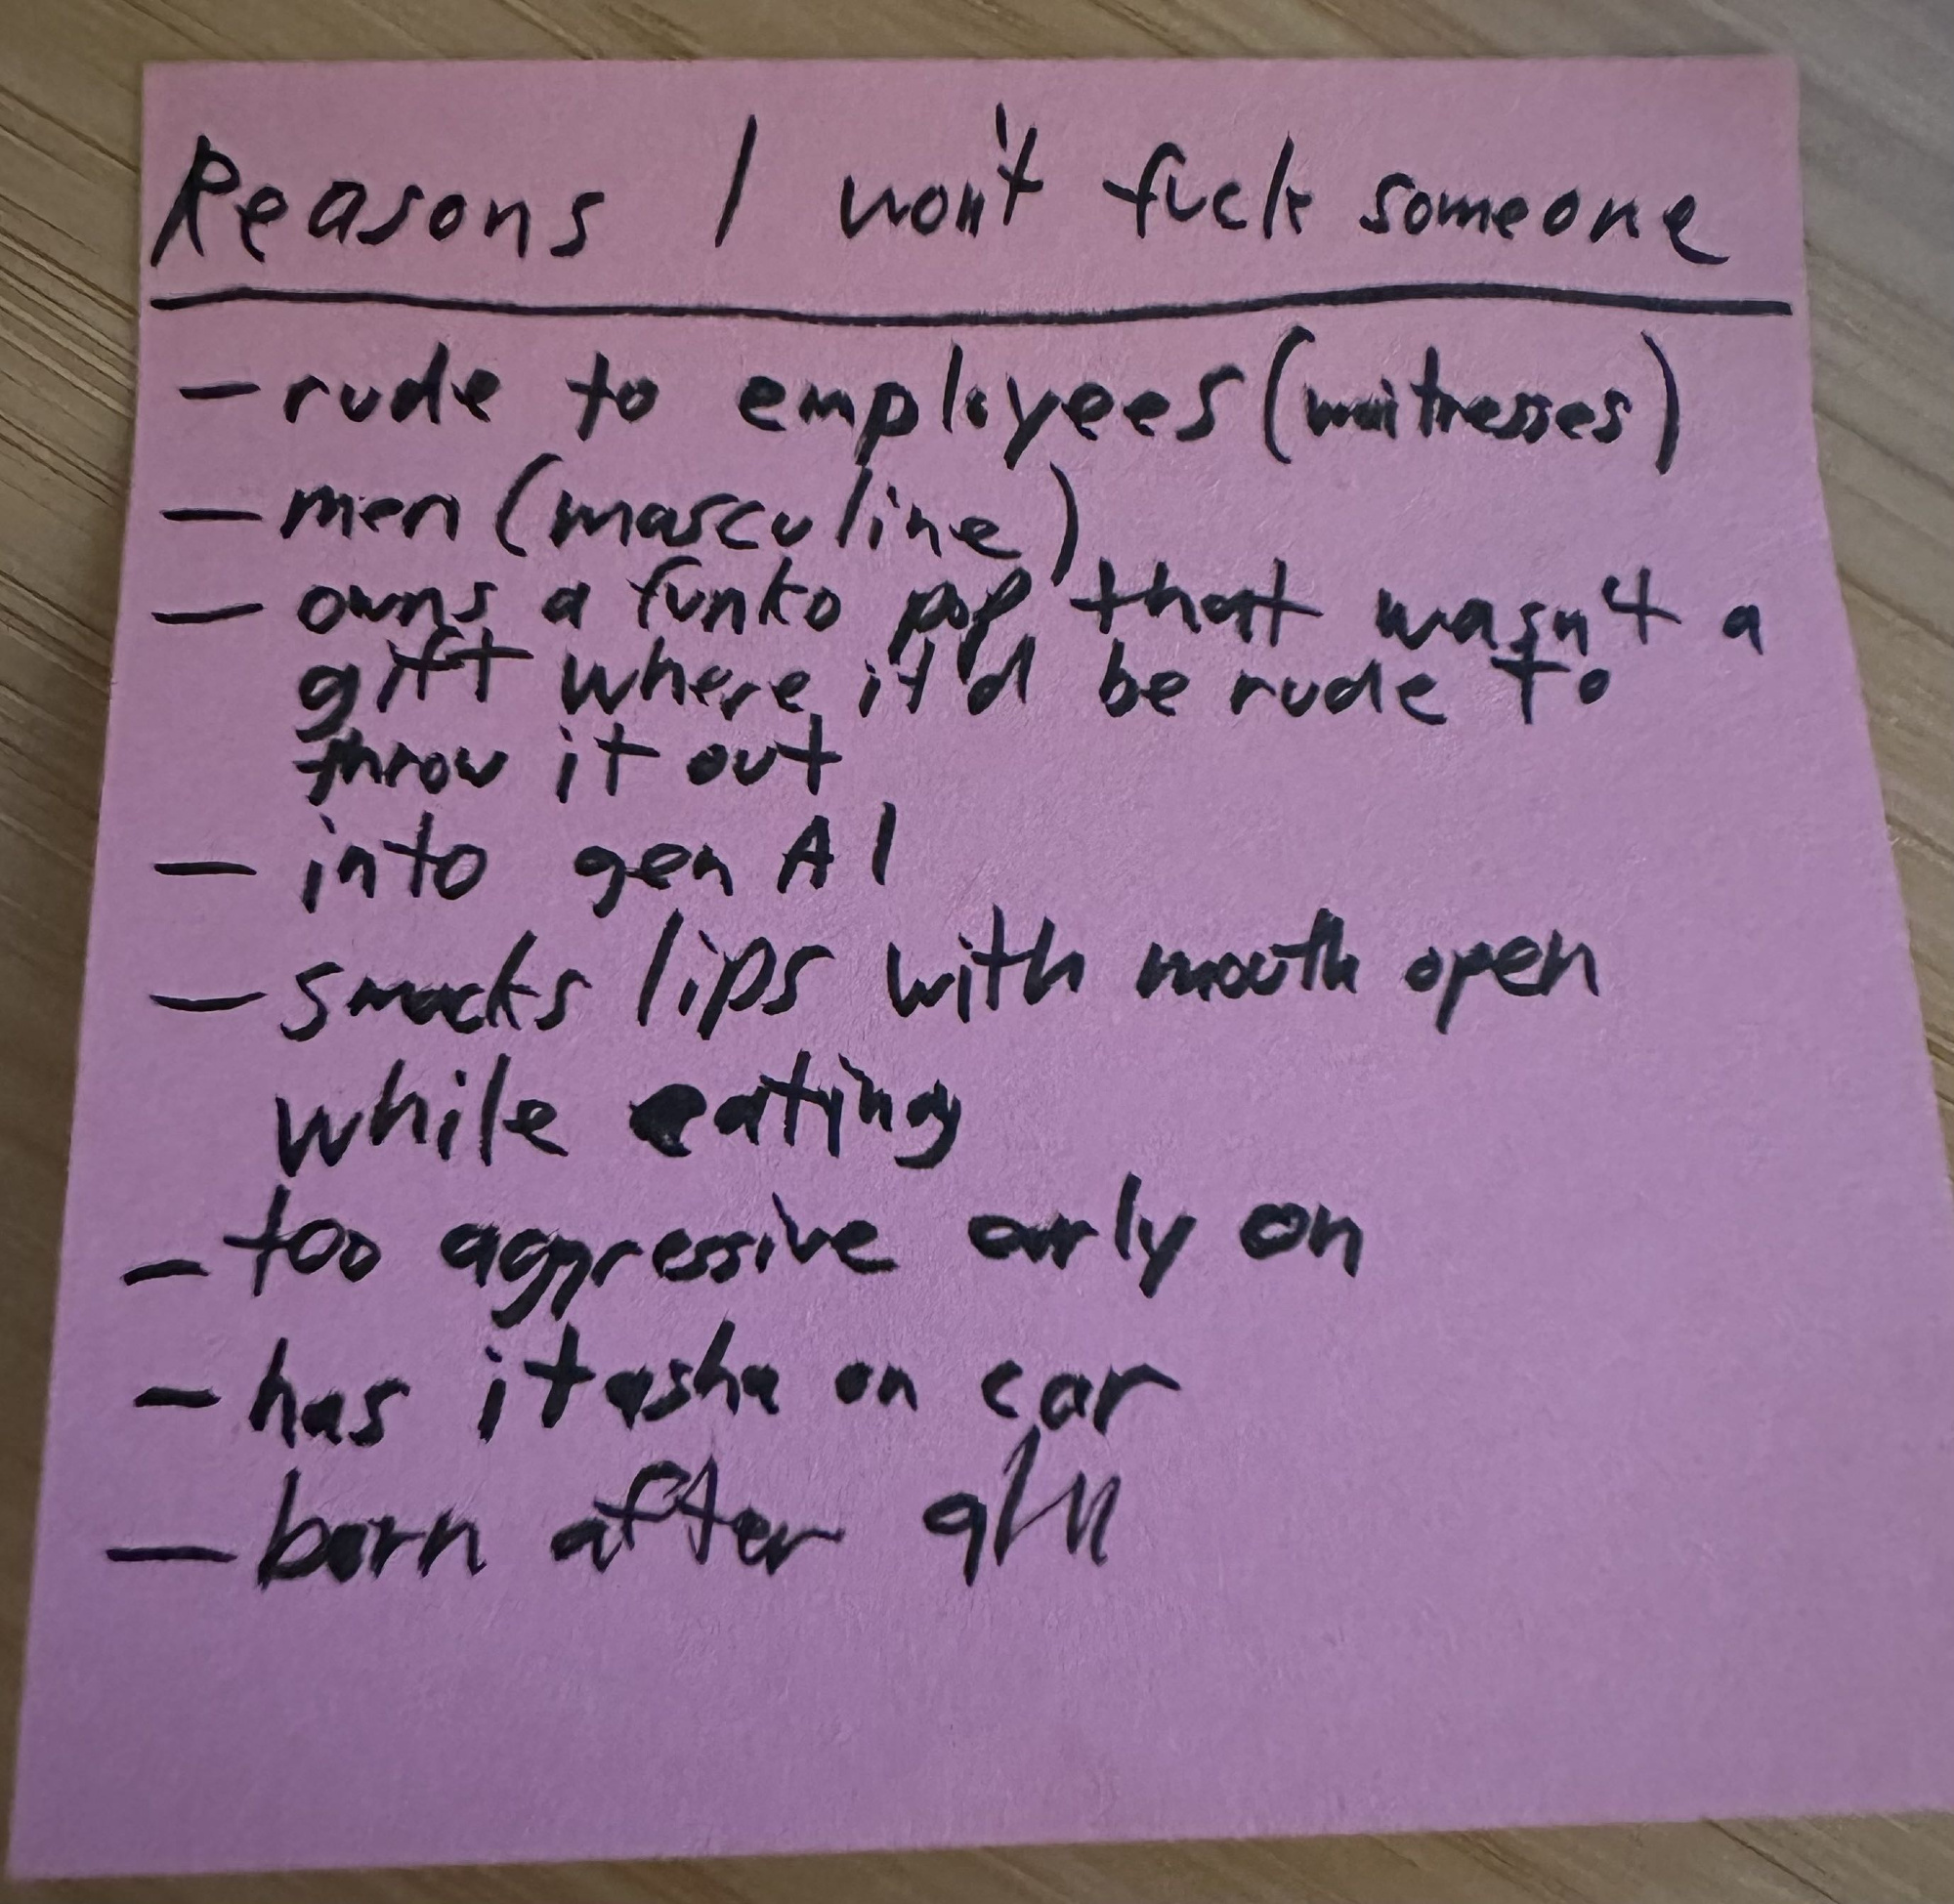 Reasons I won't fuck someone
- rude to employees (waitresses)
- men (masculine)
- owns a funko pop that wasn't a
gift where it'd be rude to
throw it out
- into gen AI
- smacks lips with mouth open
while eating
- too aggressive early on
- has itasha on car
- born after 9/11